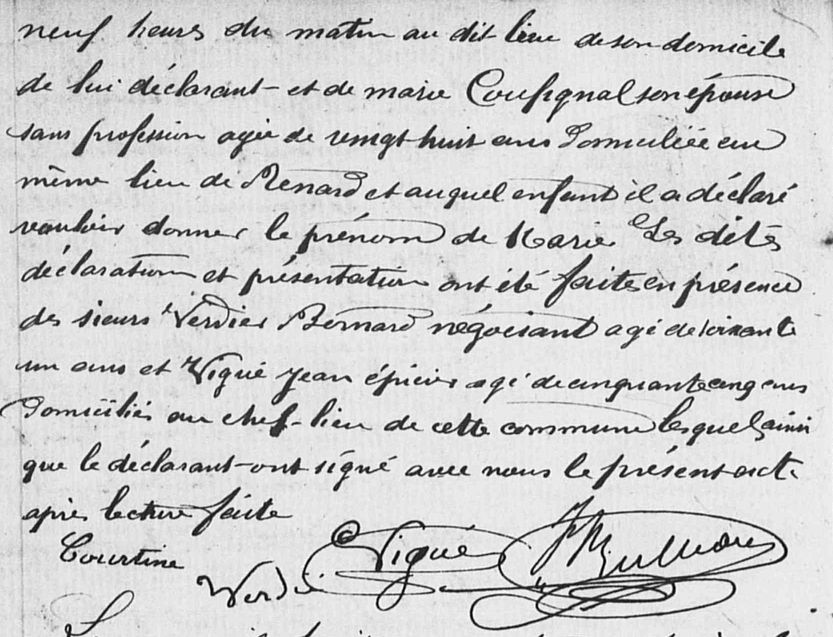 neuf heures du matin au dit lieu de son domicile
de lui déclarant et de marie Cousignal son épouse
sans profession agée de vingt huit ans Domiciliée au
même lieu de Renard et auquel enfant il a déclaré
vouloir donner le prénom de Marie Les dites
déclaration et présentation ont été faites en présence
des sieurs Verdier Bernard négociant agé de soixante
un ans et Vigué Jean épicier agé de cinquante cinq ans
Domiciliés au chef-lieu de cette commune lesquels ainsi
que le déclarant ont signé avec nous le présent acte
après lecture faite
Courtine Verdié Vigué